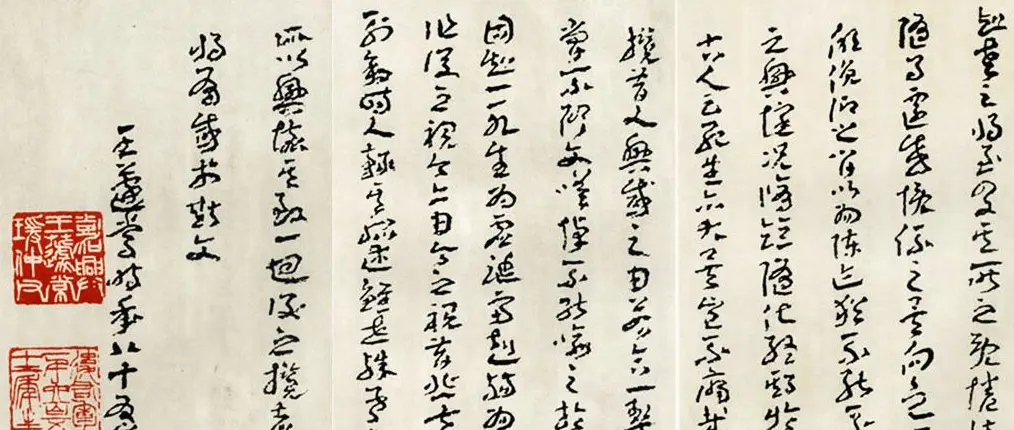 知老之將至及其所之既惓情
隨事遷感慨係之矣向之
欣俛仰之間以為陳迹猶不能不
之興懷況脩短隨化終期於
古人云死生亦大矣豈不痛哉
攬昔人興感之由若合一契
嘗不臨文嗟悼不能喻之於
固知一死生為虛誕齊彭殤為
作後之視今亦由今之視昔悲夫
列敘時人錄其所述雖世殊事
所以興懷其致一也後之攬者
將有感於斯文
王蘧常時年八十有
嘉興王蘧常瑗仲父